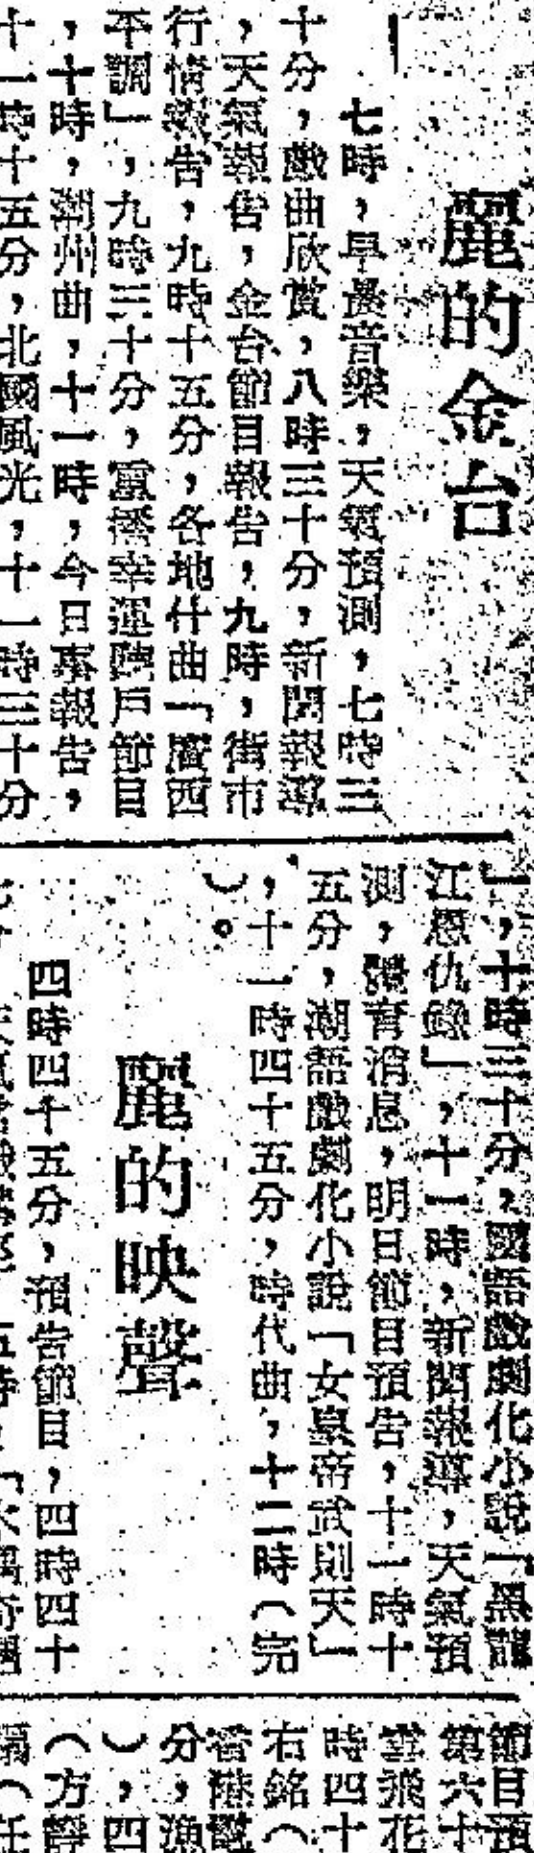 麗的金台
七時，早晨音樂，天氣預測，七時三
十分，戲曲欣賞，八時三十分，新聞報導
，天氣報告，金台節目報告，九時，街市
行情報告，九時十五分，各地什曲「廣西
平調」，九時三十分，重播幸運聽戶節目
，十時，潮州曲，十一時，今日事報告，
十一時十五分，北國風光，十一時三十分
」，十時三十分，國語戲劇化小說「黑龍
江恩仇錄」，十一時，新聞報導，天氣預
測，體育消息，明日節目預告，十一時十
五分，潮語戲劇化小說「女皇帝武則天」
，十一時四十五分，時代曲，十二時（完
）。
麗的映聲
四時四十五分，預告節目，四時四十
節目預
第六十
雲飛花
時四十
右銘（
香港
分，漁
），四
（方靜